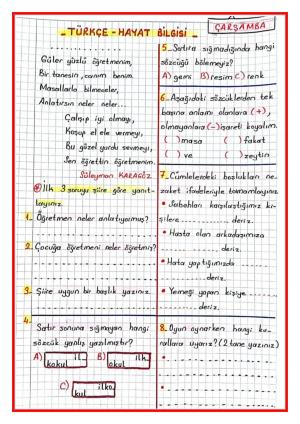 TÜRKÇE - HAYAT BİLGİSİ
ÇARŞAMBA
Güler yüzlü öğretmenim,
Bir tanesin, canım benim.
Masallarla bilmeceler,
Anlatırsın neler neler...
Çalışıp iyi olmayı,
Koşup el ele vermeyi,
Bu güzel yurdu sevmeyi,
Sen öğrettin öğretmenim.
Süleyman KARAGÖZ
İlk 3 soruyu şiire göre yanıt-
layınız.
1- Öğretmen neler anlatıyormuş?
2- Çocuğa öğretmeni neler öğretmiş?
3- Şiire uygun bir başlık yazınız.
4-
Satır sonuna sığmayan hangi
sözcük yanlış yazılmıştır?
A) il-
kokul
B) ilk-
okul
C) ilko-
kul
5- Satıra sığmadığında hangi
sözcüğü bölemeyiz?
A) genç B) resim C) renk
6- Aşağıdaki sözcüklerden tek
başına anlamı olanlara (+),
olmayanlara (-) işareti koyalım.
( ) masa ( ) fakat
( ) ve ( ) zeytin
7- Cümlelerdeki boşlukları ne-
zaket ifadeleriyle tamamlayınız.
• Sabahları karşılaştığımız ki-
şilere .............. deriz.
• Hasta olan arkadaşımıza
.............. deriz.
• Hata yaptığımızda
.............. deriz.
• Yemeği yapan kişiye ........
.............. deriz.
8- Oyun oynarken hangi ku-
rallara uyarız? (2 tane yazınız)